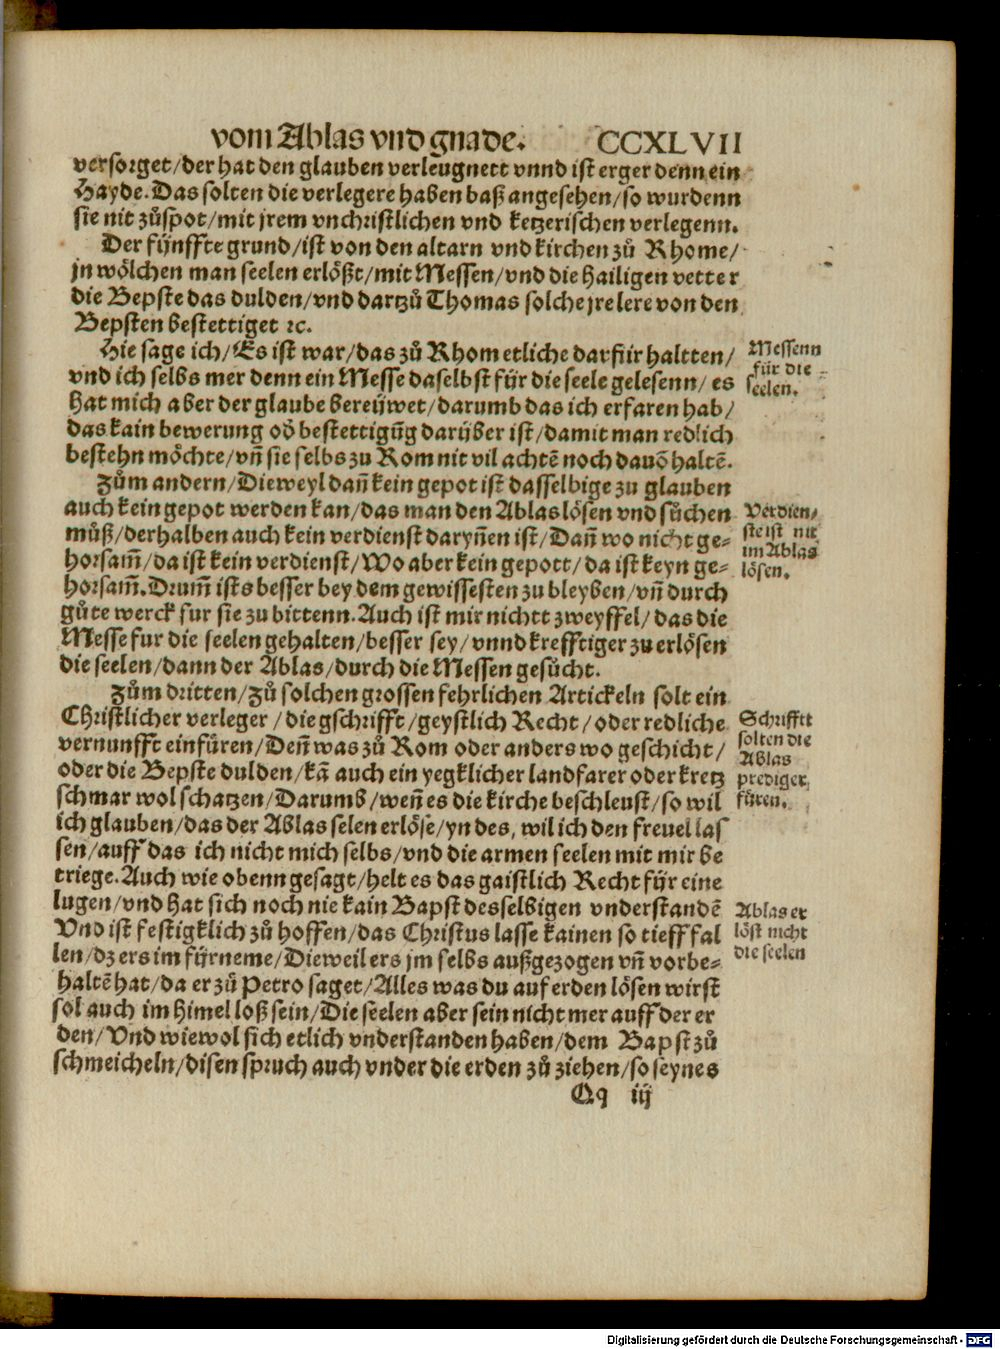 vom Ablas vnd gnade. CCXLVII
versorget/der hat den glauben verleugnett vnnd ist erger denn ein
Hayde. Das solten die verlegere haben baß angesehen/so wurdenn
sie nit zůspot/mit jrem vnchristlichen vnd ketzerischen verlegenn.
Der fijnffte grund/ist von den altarn vnd kirchen zů Rhome/
jn wölchen man seelen erlößt/mit Messen/vnd die hailigen vetter
die Bepste das dulden/vnd dartzů Thomas solche jre lere von den
Bepsten bestettiget ꝛc.
Hie sage ich/Es ist war/das zů Rhom etliche darfür haltten/
vnd ich selbs mer denn ein Messe daselbst für die seele gelesenn/ es
hat mich aber der glaube bereüwet/darumb das ich erfaren hab/
das kain bewerung oð bestettigūg darüber ist/damit man redlich
bestehn möchte/vn̄ sie selbs zu Rom nit vil achtē noch dauō haltē.
Zům andern/Dieweyl dan̄ kein gepot ist dasselbige zu glauben
auch kein gepot werden kan/das man den Ablas lösen vnd sůchen
můß/derhalben auch kein verdienst daryn̄en ist/Dan̄ wo nicht ge-
horsam̄/da ist kein verdienst/Wo aber kein gepott/da ist keyn ge-
horsam̄. Drum̄ ists besser bey dem gewissesten zu bleyben/vn̄ durch
gůte werck fur sie zu bittenn. Auch ist mir nichtt zweyffel/das die
Messe fur die seelen gehalten/besser sey/vnnd krefftiger zu erlösen
die seelen/dann der Ablas/durch die Messen gesůcht.
Zům dritten/Zů solchen grossen fehrlichen Artickeln solt ein
Christlicher verleger/die gschrifft/geystlich Recht/oder redliche
vernunfft einfüren/Den̄ was zů Rom oder anders wo geschicht/
oder die Bepste dulden/kā auch ein yegklicher landfarer oder kretz
schmar wol schatzen/Darumb/wen̄ es die kirche beschleust/so wil
ich glauben/das der Ablas selen erlöse/yn des, wil ich den freuel las
sen/auff das ich nicht mich selbs/vnd die armen seelen mit mir be
triege. Auch wie obenn gesagt/helt es das gaistlich Recht für eine
lugen/vnd hat sich noch nie kain Bapst desselbigen vnderstandē
Vnd ist festigklich zů hoffen/das Christus lasse kainen so tieff fal
len/dz ers im fürneme/Dieweil ers jm selbs außgezogen vn̄ vorbe-
haltē hat/da er zů Petro saget/Alles was du auf erden lösen wirst
sol auch im himel loß sein/Die seelen aber sein nicht mer auff der er
den/Vnd wiewol sich etlich vnderstanden haben/dem Bapst zů
schmeicheln/disen spruch auch vnder die erden zů ziehen/so seynes
Qq iij
Messenn
für die
seelen.
Verdien/
ste ist nit
im Ablas
lösen.
Schrifftt
solten die
Ablas
prediger
füren.
Ablas er
löst nicht
die seelen
Digitalisierung gefördert durch die Deutsche Forschungsgemeinschaft - DFG